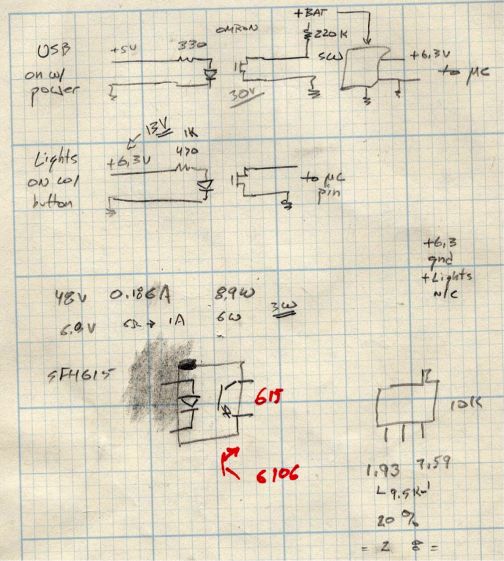 +BAT
OMRON
USB
on w/
power
+5V
330
220K
SW
+6.3V
to µC
30V
13V
1K
Lights
ON w/
button
+6.3V
470
to µC
pin
+6.3
gnd
+Lights
N/C
48V 0.186A 8.9W
3W
1A 6W
SFH615
615
6106
10K
1.93 7.59
20%
= 2 8 =